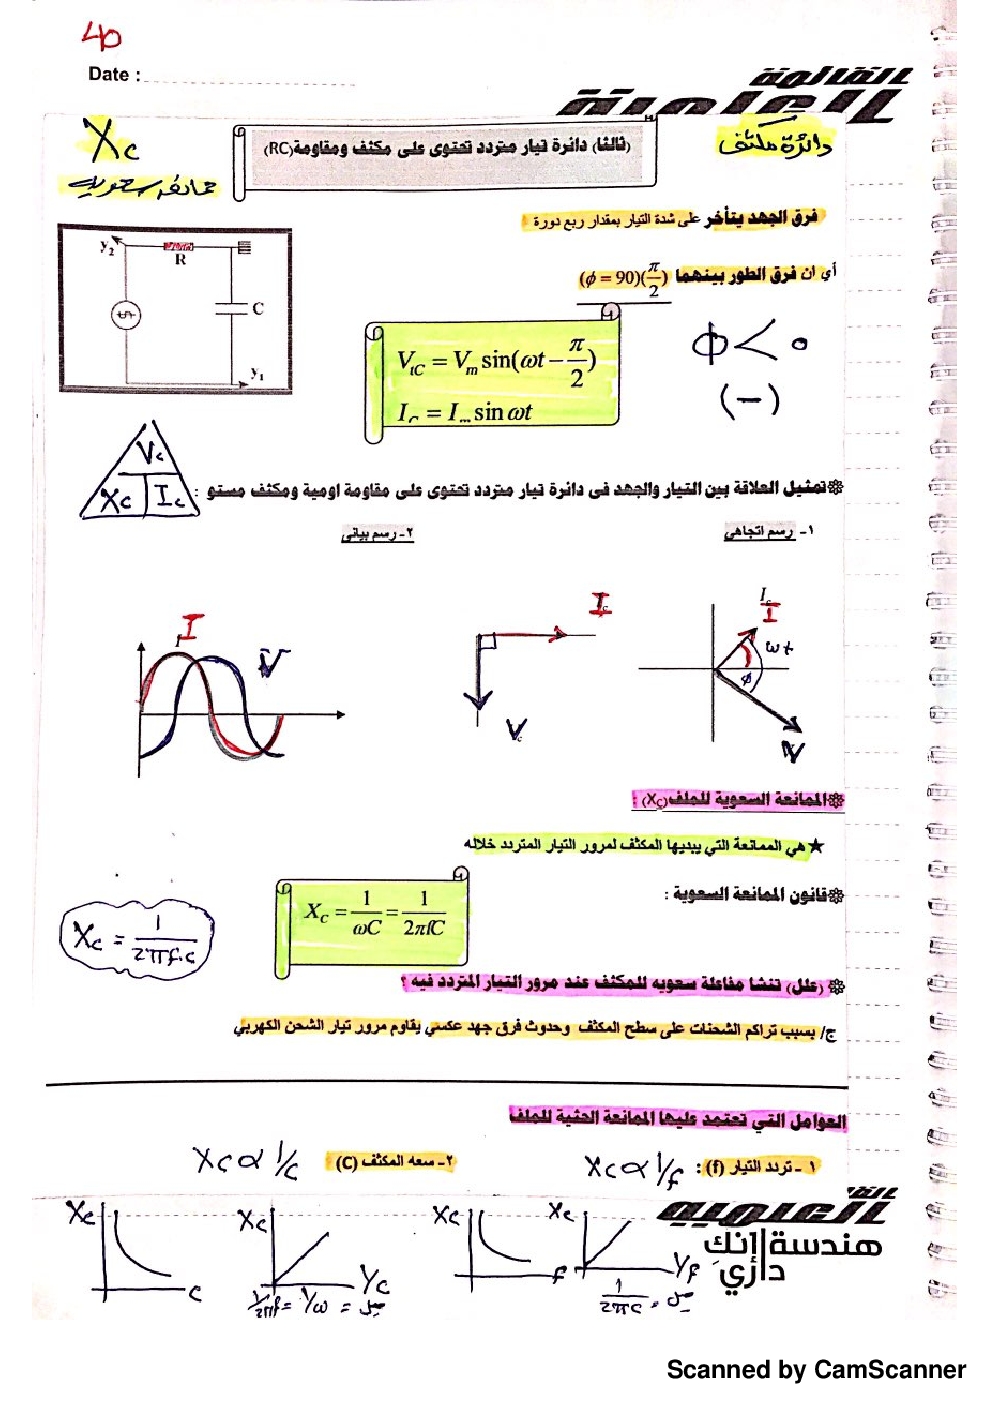 40
Date :
القائمة العلمية
Xc
دائرة مكثف
(ثالثا) دائرة تيار متردد تحتوى على مكثف ومقاومة(RC)
فرق الجهد يتأخر على شدة التيار بمقدار ربع دورة
أي ان فرق الطور بينهما (π/2)(ϕ = 90)
y₂
R
C
y₁
V_tC = V_m sin(ωt − π/2)
I_C = I_m sin ωt
ϕ < 0
(−)
Vc
Xc Ic
❊تمثيل العلاقة بين التيار والجهد فى دائرة تيار متردد تحتوى على مقاومة اومية ومكثف مستو :
١- رسم اتجاهى
٢- رسم بيانى
I V
Ic
Vc
Ic
I
ωt
ϕ
V
❊الممانعة السعوية للملف(Xc) :
★هي الممانعة التي يبديها المكثف لمرور التيار المتردد خلاله
❊قانون الممانعة السعوية :
X_C = 1/ωC = 1/2πfC
Xc = 1/2πf.c
❊(علل) تنشا مفاعلة سعويه للمكثف عند مرور التيار المتردد فيه ؟
ج/ بسبب تراكم الشحنات على سطح المكثف وحدوث فرق جهد عكسي يقاوم مرور تيار الشحن الكهربي
العوامل التي تعتمد عليها الممانعة الحثية للملف
١ - تردد التيار (f) : Xc α 1/f
٢- سعه المكثف (C) Xc α 1/c
Xc f
Xc 1/f
1/2πc = ميل
Xc c
Xc 1/c
1/2πf = 1/ω = ميل
هندسة إنك داري
Scanned by CamScanner